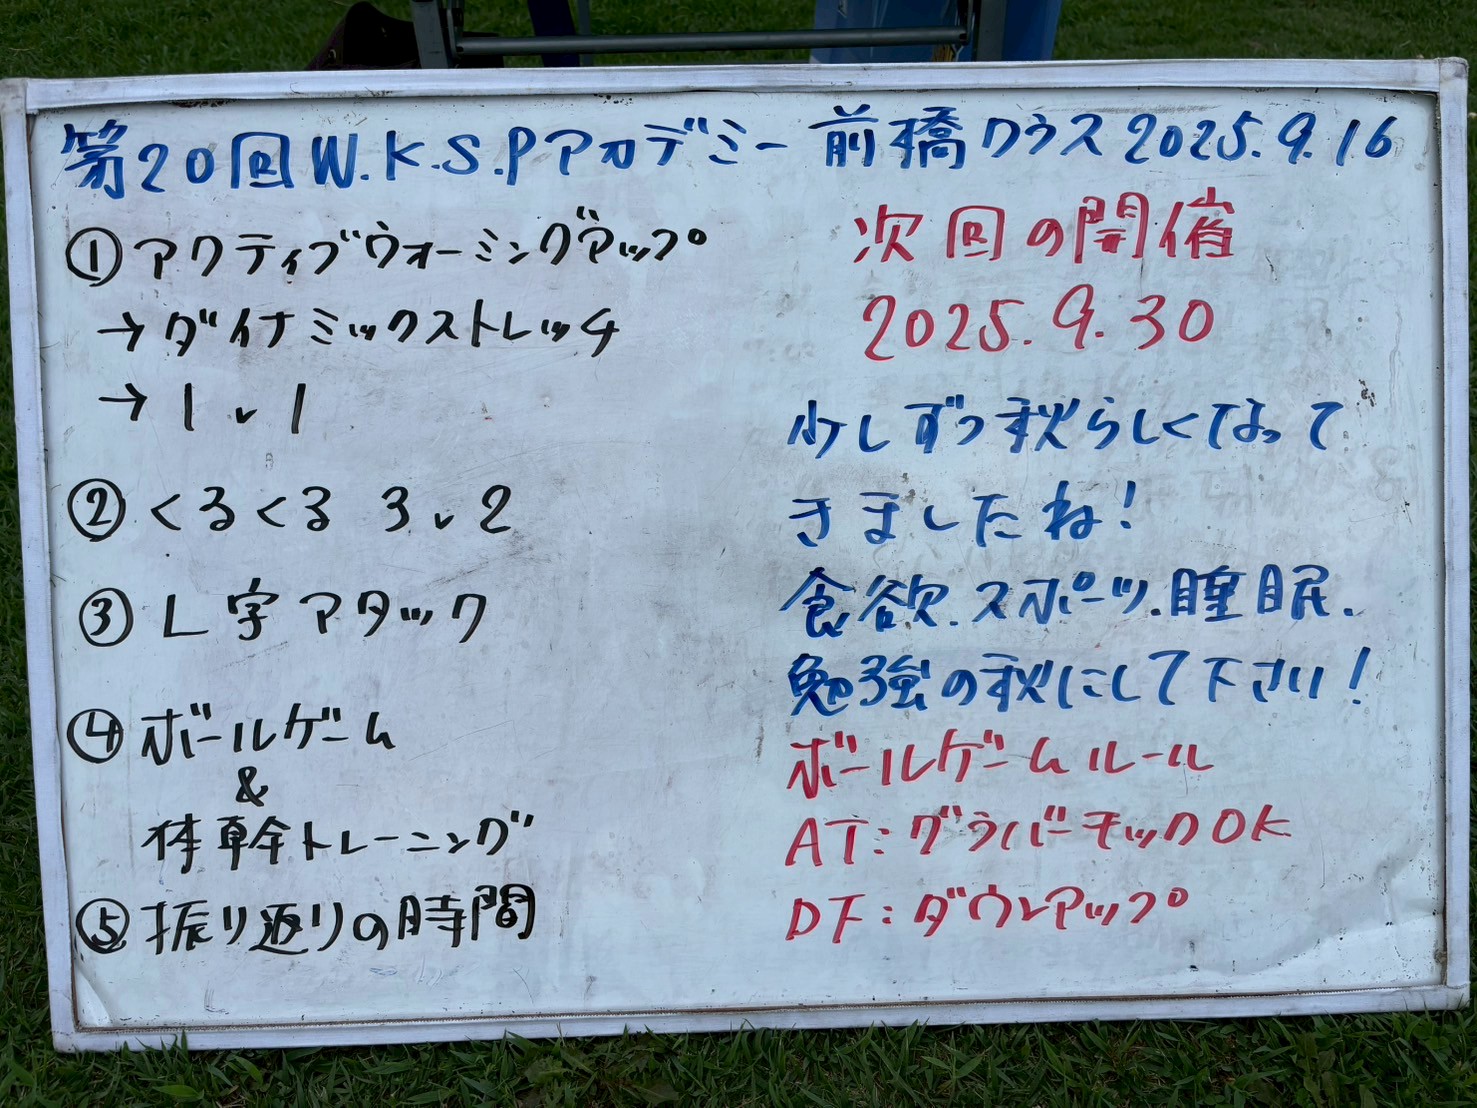 第20回W.K.S.Pアカデミー 前橋クラス2025.9.16
①アクティブウォーミングアップ
→ダイナミックストレッチ
→1v1
②くるくる 3v2
③L字アタック
④ボールゲーム
&
体幹トレーニング
⑤振り返りの時間
次回の開催
2025.9.30
少しずつ秋らしくなって
きましたね!
食欲.スポーツ.睡眠.
勉強の秋にして下さい!
ボールゲームルール
AT:グラバーモックOK
DF:ダウンアップ